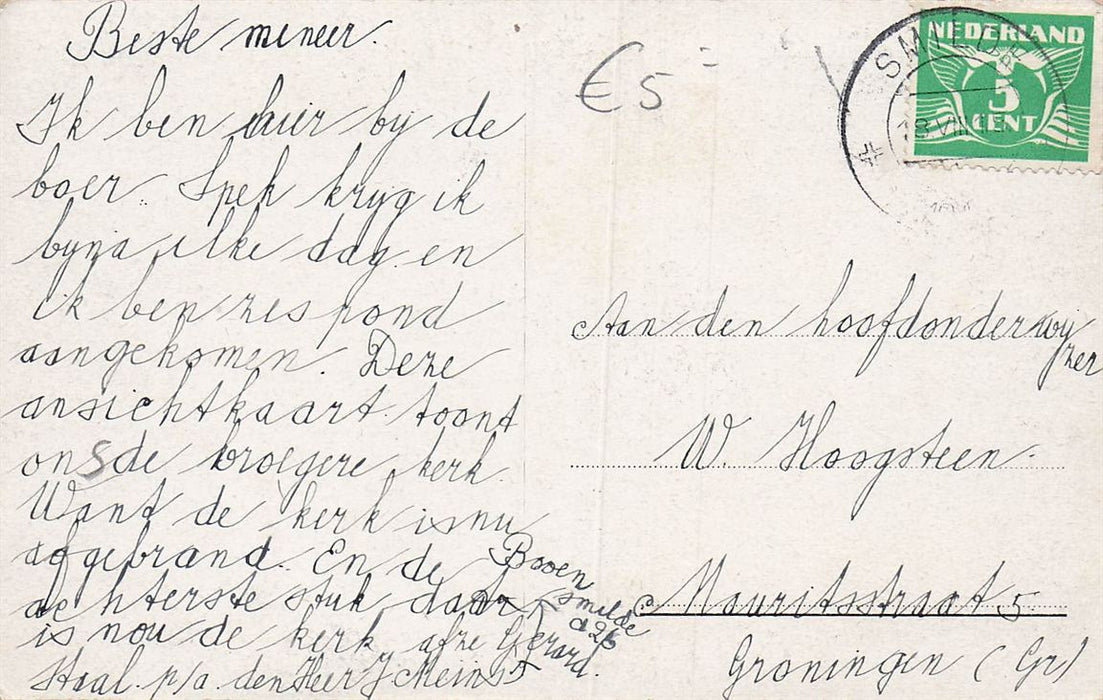 Beste meneer.
Ik ben hier by de
boer. Spek kryg ik
byna elke dag en
ik ben zes pond
aangekomen. Deze
ansichtkaart toont
ons de vroegere kerk.
Want de kerk is nu
afgebrand. En de
achterste stuk daar
is nou de kerk. afz Gerard.
Staal p/a den Heer J
Boven
smilde
a 26
€5-
SMILDE
18 VIII
NEDERLAND
5
CENT
Aan den hoofdonderwij
zer
W. Hoogsteen.
Mauritsstraat 5
Groningen (Gr)